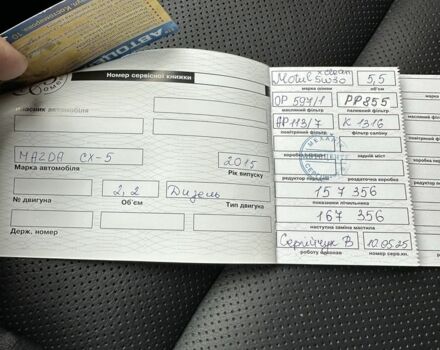 АВТОЦ
Номер сервісної книжки
Власник автомобіля
MAZDA CX-5
2015
Марка автомобіля
Рік випуску
2,2
Дизель
№ двигуна
Об'єм
Тип двигуна
Держ. номер
Motul x-clean 5W30
5,5
марка оливи
об'єм
OP 597/1
PP855
масляний фільтр
паливний фільтр
AP 113/7
K 1316
повітряний фільтр
фільтр салону
коробка
задній міст
редуктор передній
роздаточна коробка
157 356
показники лічильника
167 356
наступна заміна мастила
Сергійчук В
10.05.25
роботу виконав
номер серв.кн.